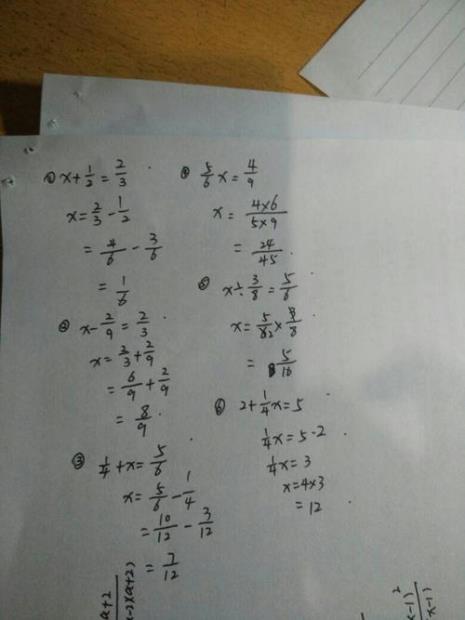 ① x+1/2=2/3
x=2/3-1/2
=4/6-3/6
=1/6
② x-2/9=2/3
x=2/3+2/9
=6/9+2/9
=8/9
③ 1/4+x=5/6
x=5/6-1/4
=10/12-3/12
=7/12
④ 5/6x=4/9
x=4×6/5×9
=24/45
⑤ x÷3/8=5/6
x=5/62×3/8
=5/16
⑥ 2+1/4x=5
1/4x=5-2
1/4x=3
x=4×3
=12